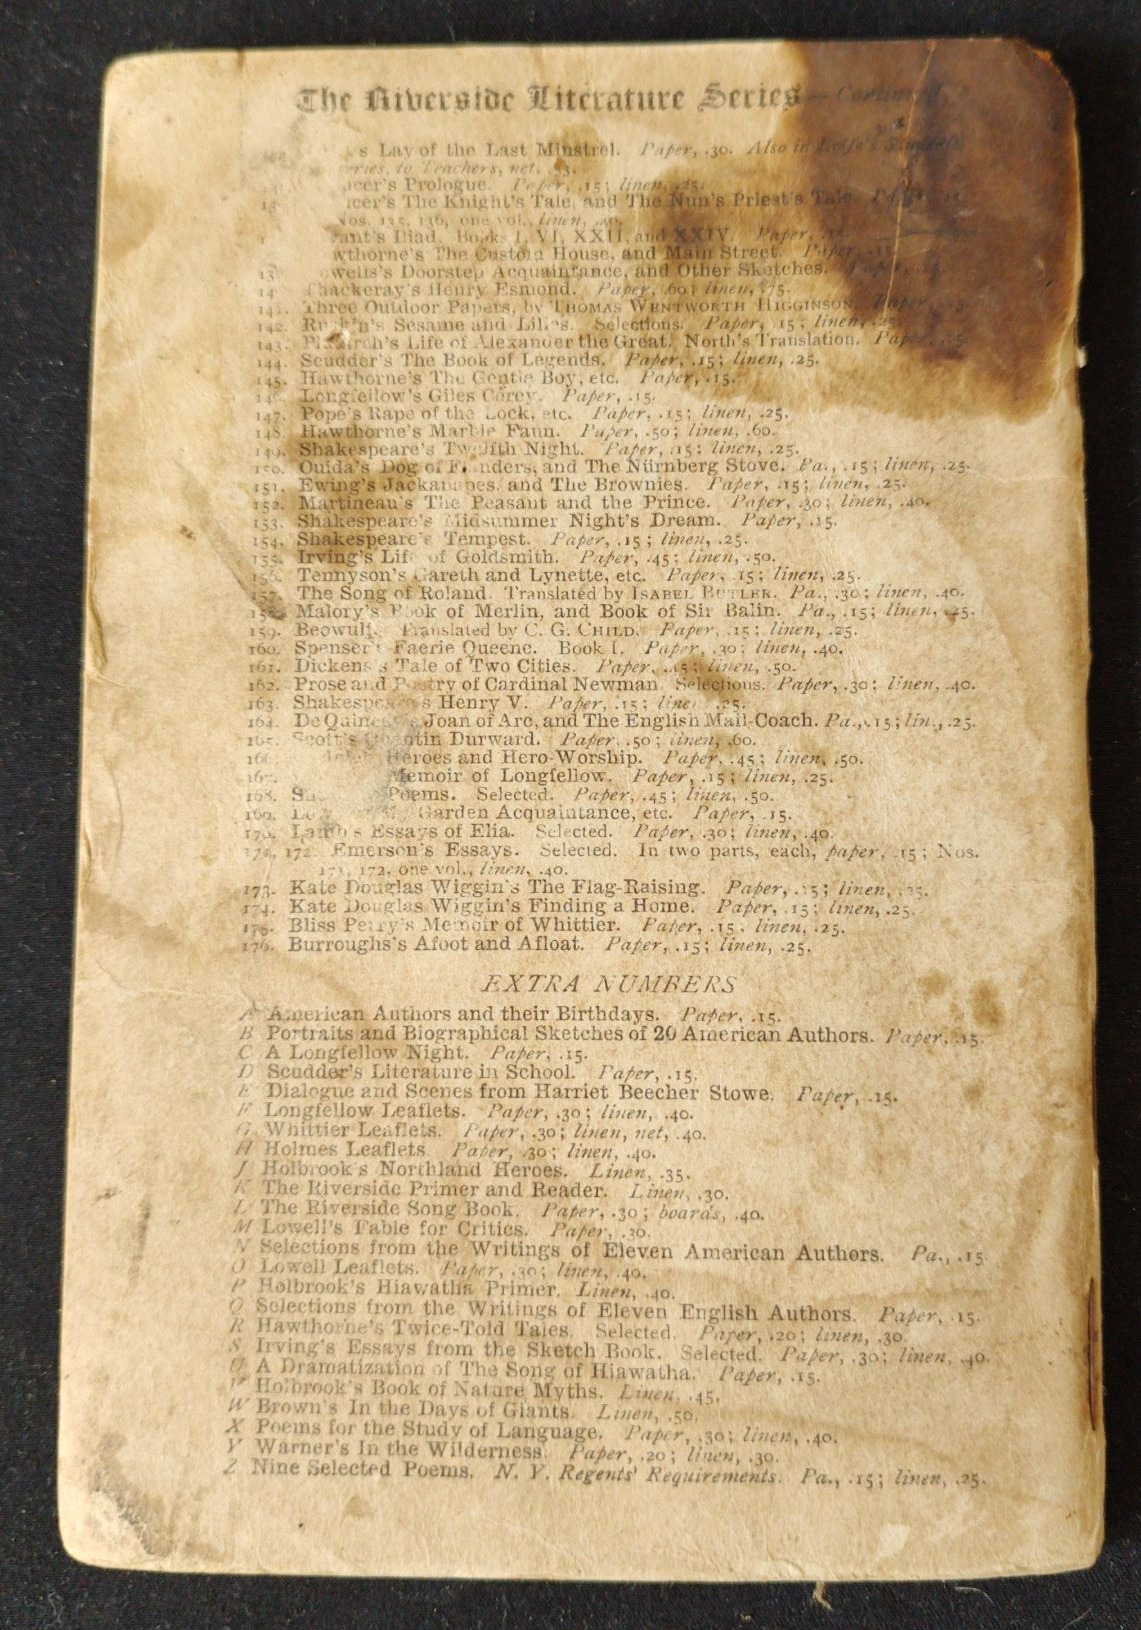 The Riverside Literature Series — Continued
s Lay of the Last Minstrel. Paper, .30. Also in
to Teachers, net,
Prologue. Paper, .15; linen, .25.
13 cer's The Knight's Tale, and The Nun's Priest's Tale. Paper, .15
Nos. 135, 136, one vol., linen, .40.
ant's Iliad. Books I, VI, XXII, and XXIV. Paper, .15.
wthorne's The Custom House, and Main Street. Paper, .15.
13 owells's Doorstep Acquaintance, and Other Sketches. Paper, .15.
14 Thackeray's Henry Esmond. Paper, .60; linen, .75.
141. Three Outdoor Papers, by THOMAS WENTWORTH HIGGINSON. Paper, .15.
142. Ruskin's Sesame and Lilies. Selections. Paper, .15; linen, .25
143. Plutarch's Life of Alexander the Great. North's Translation. Paper, .15.
144. Scudder's The Book of Legends. Paper, .15; linen, .25.
145. Hawthorne's The Gentle Boy, etc. Paper, .15.
146. Longfellow's Giles Corey. Paper, .15.
147. Pope's Rape of the Lock, etc. Paper, .15; linen, .25.
148. Hawthorne's Marble Faun. Paper, .50; linen, .60.
149. Shakespeare's Twelfth Night. Paper, .15; linen, .25.
150. Ouida's Dog of Flanders, and The Nürnberg Stove. Pa., .15; linen, .25.
151. Ewing's Jackanapes, and The Brownies. Paper, .15; linen, .25.
152. Martineau's The Peasant and the Prince. Paper, .30; linen, .40.
153. Shakespeare's Midsummer Night's Dream. Paper, .15.
154. Shakespeare's Tempest. Paper, .15; linen, .25.
155. Irving's Life of Goldsmith. Paper, .45; linen, .50.
156. Tennyson's Gareth and Lynette, etc. Paper, .15; linen, .25.
157. The Song of Roland. Translated by ISABEL BUTLER. Pa., .30; linen, .40.
158. Malory's Book of Merlin, and Book of Sir Balin. Pa., .15; linen, .25.
159. Beowulf. Translated by C. G. CHILD. Paper, .15; linen, .25.
160. Spenser's Faerie Queene. Book I. Paper, .30; linen, .40.
161. Dickens's Tale of Two Cities. Paper, .45; linen, .50.
162. Prose and Poetry of Cardinal Newman. Selections. Paper, .30; linen, .40.
163. Shakespeare's Henry V. Paper, .15; linen, .25.
164. De Quincey's Joan of Arc, and The English Mail-Coach. Pa., .15; lin., .25.
165. Scott's Quentin Durward. Paper, .50; linen, .60.
166. Heroes and Hero-Worship. Paper, .45; linen, .50.
167. Memoir of Longfellow. Paper, .15; linen, .25.
168. Poems. Selected. Paper, .45; linen, .50.
169. Garden Acquaintance, etc. Paper, .15.
170. Lamb's Essays of Elia. Selected. Paper, .30; linen, .40.
171, 172. Emerson's Essays. Selected. In two parts, each, paper, .15; Nos.
171, 172, one vol., linen, .40.
173. Kate Douglas Wiggin's The Flag-Raising. Paper, .15; linen, .25.
174. Kate Douglas Wiggin's Finding a Home. Paper, .15; linen, .25.
175. Bliss Perry's Memoir of Whittier. Paper, .15; linen, .25.
176. Burroughs's Afoot and Afloat. Paper, .15; linen, .25.
EXTRA NUMBERS
A American Authors and their Birthdays. Paper, .15.
B Portraits and Biographical Sketches of 20 American Authors. Paper, .15
C A Longfellow Night. Paper, .15.
D Scudder's Literature in School. Paper, .15.
E Dialogue and Scenes from Harriet Beecher Stowe. Paper, .15.
F Longfellow Leaflets. Paper, .30; linen, .40.
G Whittier Leaflets. Paper, .30; linen, net, .40.
H Holmes Leaflets. Paper, .30; linen, .40.
J Holbrook's Northland Heroes. Linen, .35.
K The Riverside Primer and Reader. Linen, .30.
L The Riverside Song Book. Paper, .30; boards, .40.
M Lowell's Fable for Critics. Paper, .30.
N Selections from the Writings of Eleven American Authors. Pa., .15
O Lowell Leaflets. Paper, .30; linen, .40.
P Holbrook's Hiawatha Primer. Linen, .40.
Q Selections from the Writings of Eleven English Authors. Paper, .15.
R Hawthorne's Twice-Told Tales. Selected. Paper, .20; linen, .30.
S Irving's Essays from the Sketch Book. Selected. Paper, .30; linen, .40.
A Dramatization of The Song of Hiawatha. Paper, .15.
Holbrook's Book of Nature Myths. Linen, .45.
W Brown's In the Days of Giants. Linen, .50.
X Poems for the Study of Language. Paper, .30; linen, .40.
Y Warner's In the Wilderness. Paper, .20; linen, .30.
Z Nine Selected Poems. N. Y. Regents' Requirements. Pa., .15; linen, .25.